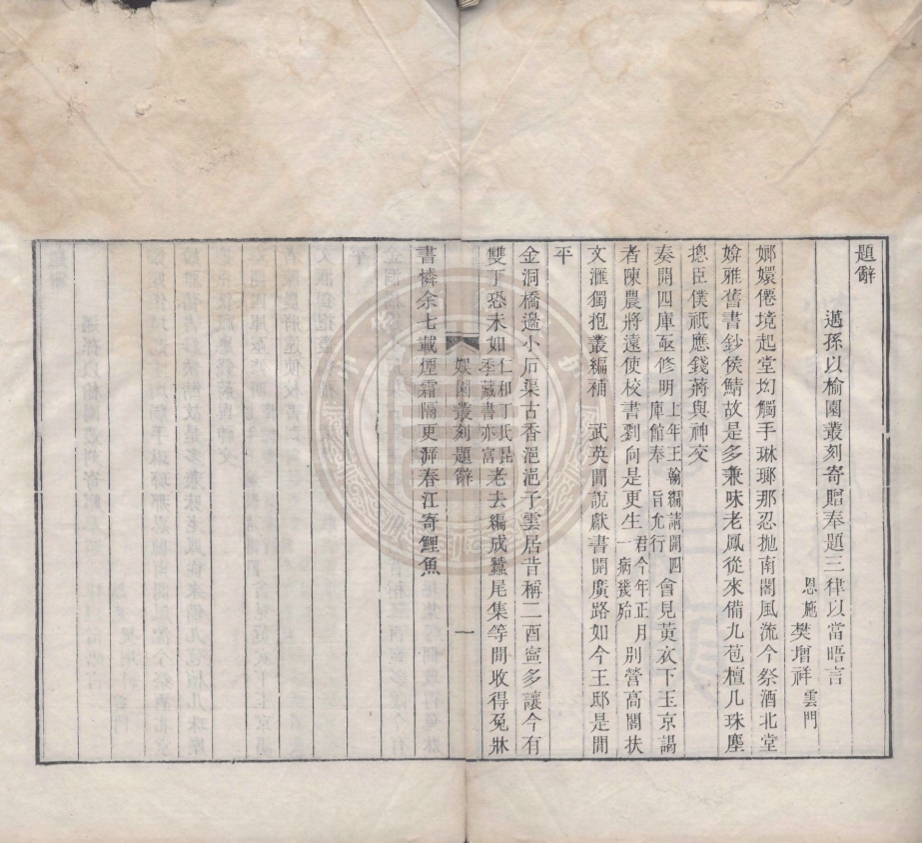 題辭
邁孫以榆園叢刻寄贈奉題三律以當晤言
恩施 樊增祥 雲門
嫏嬛僊境起堂坳觸手琳瑯那忍拋南閣風流今祭酒北堂
媕雅舊書鈔侯鯖故是多兼味老鳳從來備九苞檀几珠塵
摠臣僕祇應錢蔣與神交
奏開四庫亟修明上年王翰編請開四庫館奉 旨允行會見黃衣下玉京謁
者陳農將遠使校書劉向是更生君今年正月一病幾殆別營高閣扶
文滙獨抱叢編補 武英聞說獻書開廣路如今王邸是閒
平
金洞橋邊小石渠古香浥浥子雲居昔稱二酉寧多讓今有
雙丁恐未如仁和丁氏昆季藏書亦富老去編成蠶尾集等閒收得兔牀
娛園叢刻題辭 一
書憐余七載煙霜隔更溯春江寄鯉魚